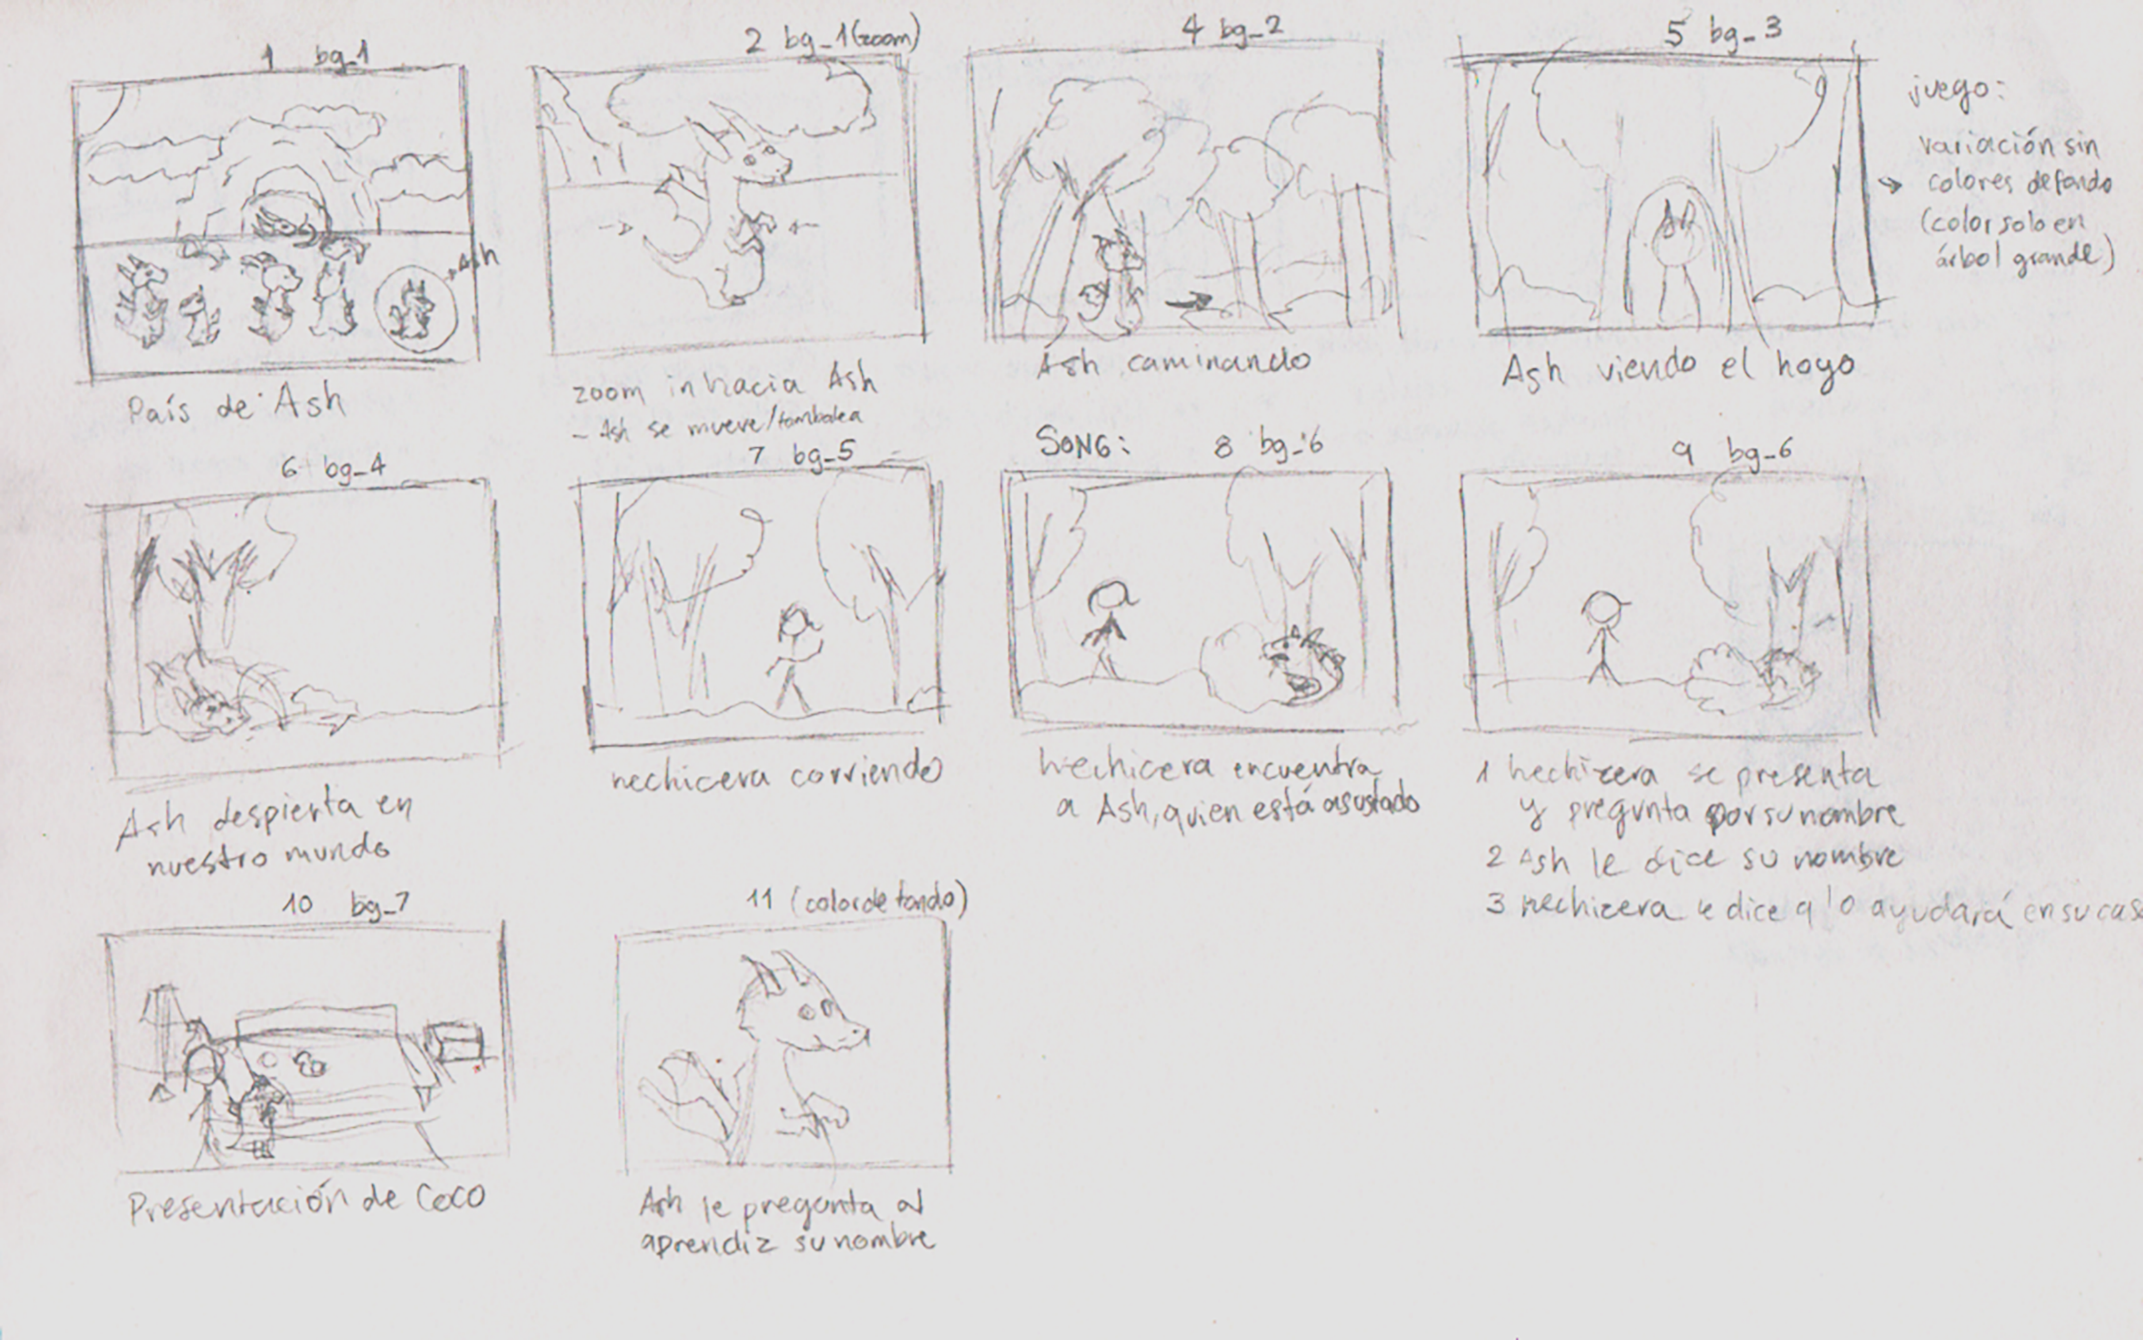 1 bg_1
Ash
País de Ash
2 bg_1(zoom)
zoom in hacia Ash
- Ash se mueve/tambalea
4 bg_2
Ash caminando
5 bg_3
Ash viendo el hoyo
juego:
variación sin
colores de fondo
(color solo en
árbol grande)
6 bg_4
Ash despierta en
nuestro mundo
7 bg_5
hechicera corriendo
SONG: 8 bg_6
hechicera encuentra
a Ash, quien está asustado
9 bg_6
1 hechizera se presenta
y pregunta por su nombre
2 Ash le dice su nombre
3 hechicera le dice q lo ayudará en su casa
10 bg_7
Presentación de Coco
11 (color de fondo)
Ash le pregunta al
aprendiz su nombre